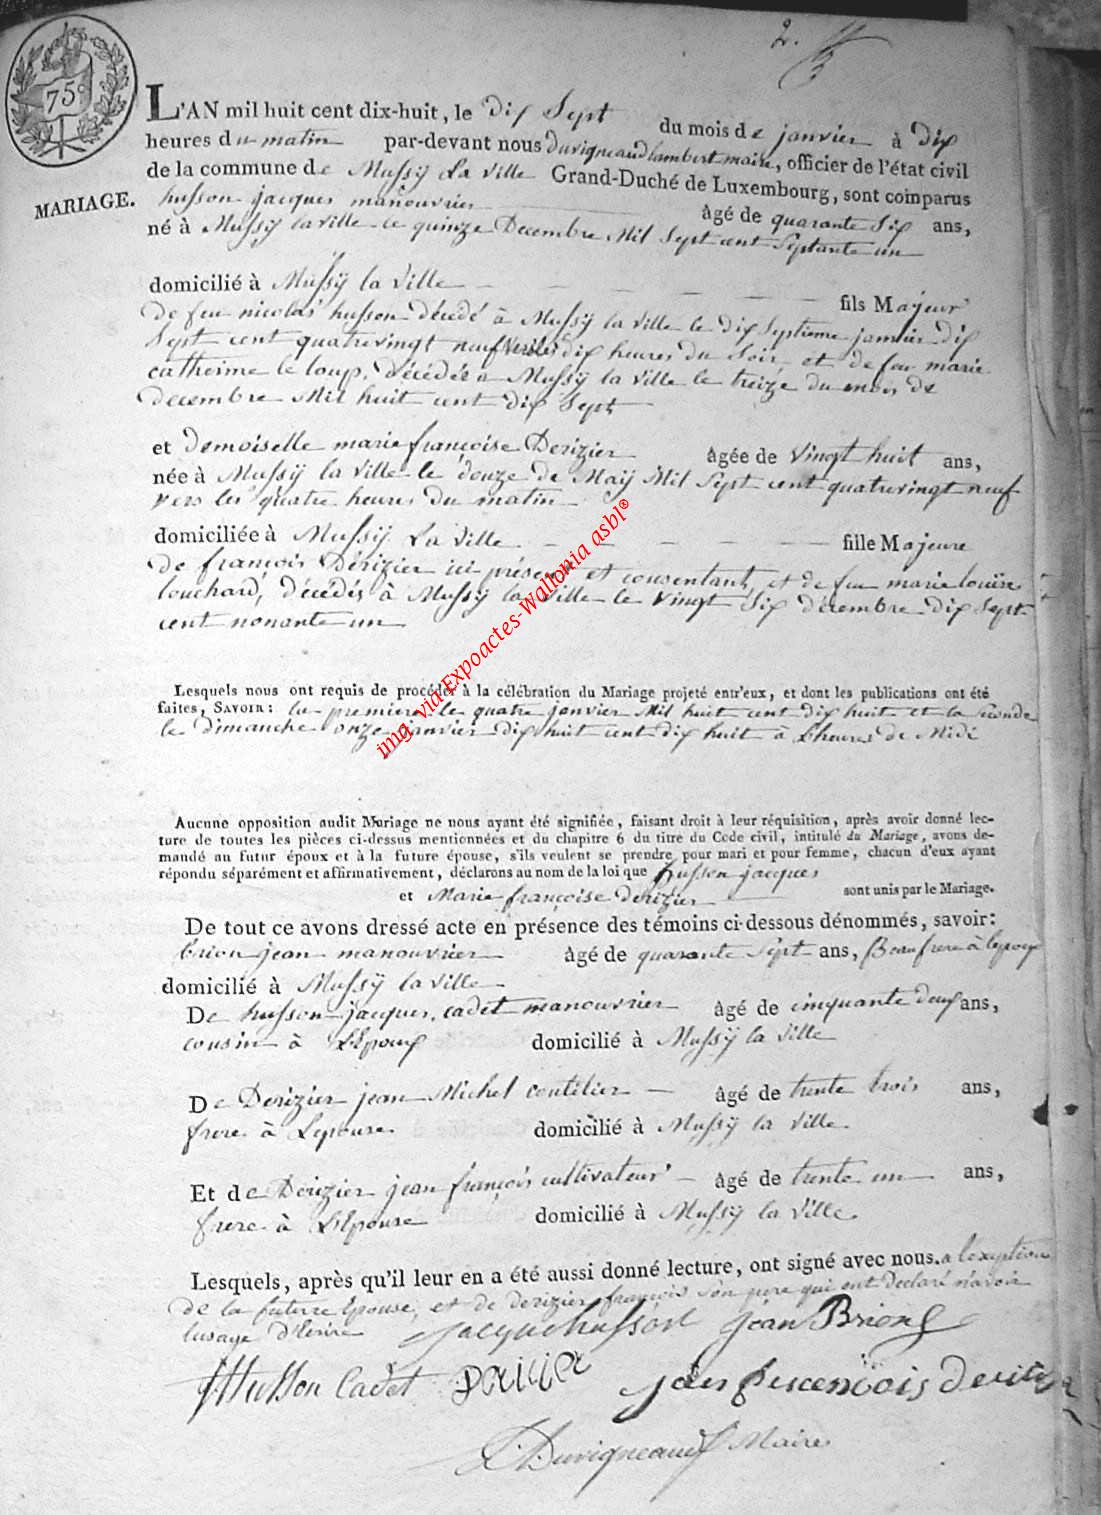 2.
75c
MARIAGE.
L'AN mil huit cent dix-huit, le dix Sept du mois de janvier à dix
heures du matin par-devant nous Duvigneaud lambert maire, officier de l'état civil
de la commune de Mussÿ La Ville Grand-Duché de Luxembourg, sont comparus
husson jacques manouvrier âgé de quarante Six ans,
né à Mussÿ la ville le quinze Decembre Mil Sept cent Septante un
domicilié à Mussÿ la ville fils Majeur
de feu nicolas husson décédé à Mussÿ la ville le dix Septieme janvier dix
Sept cent quatrevingt neuf vers les dix heures du Soir et de feu marie
catherine le loup, Décédée a Mussÿ la ville le treize du mois de
decembre Mil huit cent dix Sept
et demoiselle marie françoise Derizier âgée de vingt huit ans,
née à Mussÿ la ville le douze de Maÿ Mil Sept cent quatrevingt neuf
vers les quatre heures du matin
domiciliée à Mussÿ La Ville fille Majeure
de françois Dérizier ici présent et consentant, et de feu marie louise
louchard, décédés à Mussÿ la ville le vingt Six décembre dix Sept
cent nonante un
Lesquels nous ont requis de procéder à la célébration du Mariage projeté entr'eux, et dont les publications ont été
faites, SAVOIR: la premiere le quatre janvier Mil huit cent dix huit et la Seconde
le dimanche onze janvier dix huit cent dix huit a L'heure de Midi
Aucune opposition audit Mariage ne nous ayant été signifiée, faisant droit à leur réquisition, après avoir donné lec-
ture de toutes les pièces ci-dessus mentionnées et du chapitre 6 du titre du Code civil, intitulé du Mariage, avons de-
mandé au futur époux et à la future épouse, s'ils veulent se prendre pour mari et pour femme, chacun d'eux ayant
répondu séparément et affirmativement, déclarons au nom de la loi que husson jacques
et Marie françoise derizier sont unis par le Mariage.
De tout ce avons dressé acte en présence des témoins ci-dessous dénommés, savoir:
brion jean manouvrier âgé de quarante Sept ans, Beaufrere à lepoux
domicilié à Mussÿ la ville
De husson jacques cadet manouvrier âgé de cinquante deux ans,
cousin à L'Epoux domicilié à Mussÿ la ville
De Derizier jean Michel coutelier âgé de trente trois ans,
frere à Lepouse domicilié à Mussÿ la ville
Et de Derizier jean françois cultivateur âgé de trente un ans,
frere à L'Epouse domicilié à Mussÿ la ville
Lesquels, après qu'il leur en a été aussi donné lecture, ont signé avec nous. a lexeption
de la futurre Epouse, et de derizier françois Son pere qui ont Declaré n'avoir
lusage d'Ecrire
jacque husson jean Brion
JHusson Cadet
L Duvigneaud Maire
img via Expoactes-Wallonia asbl®